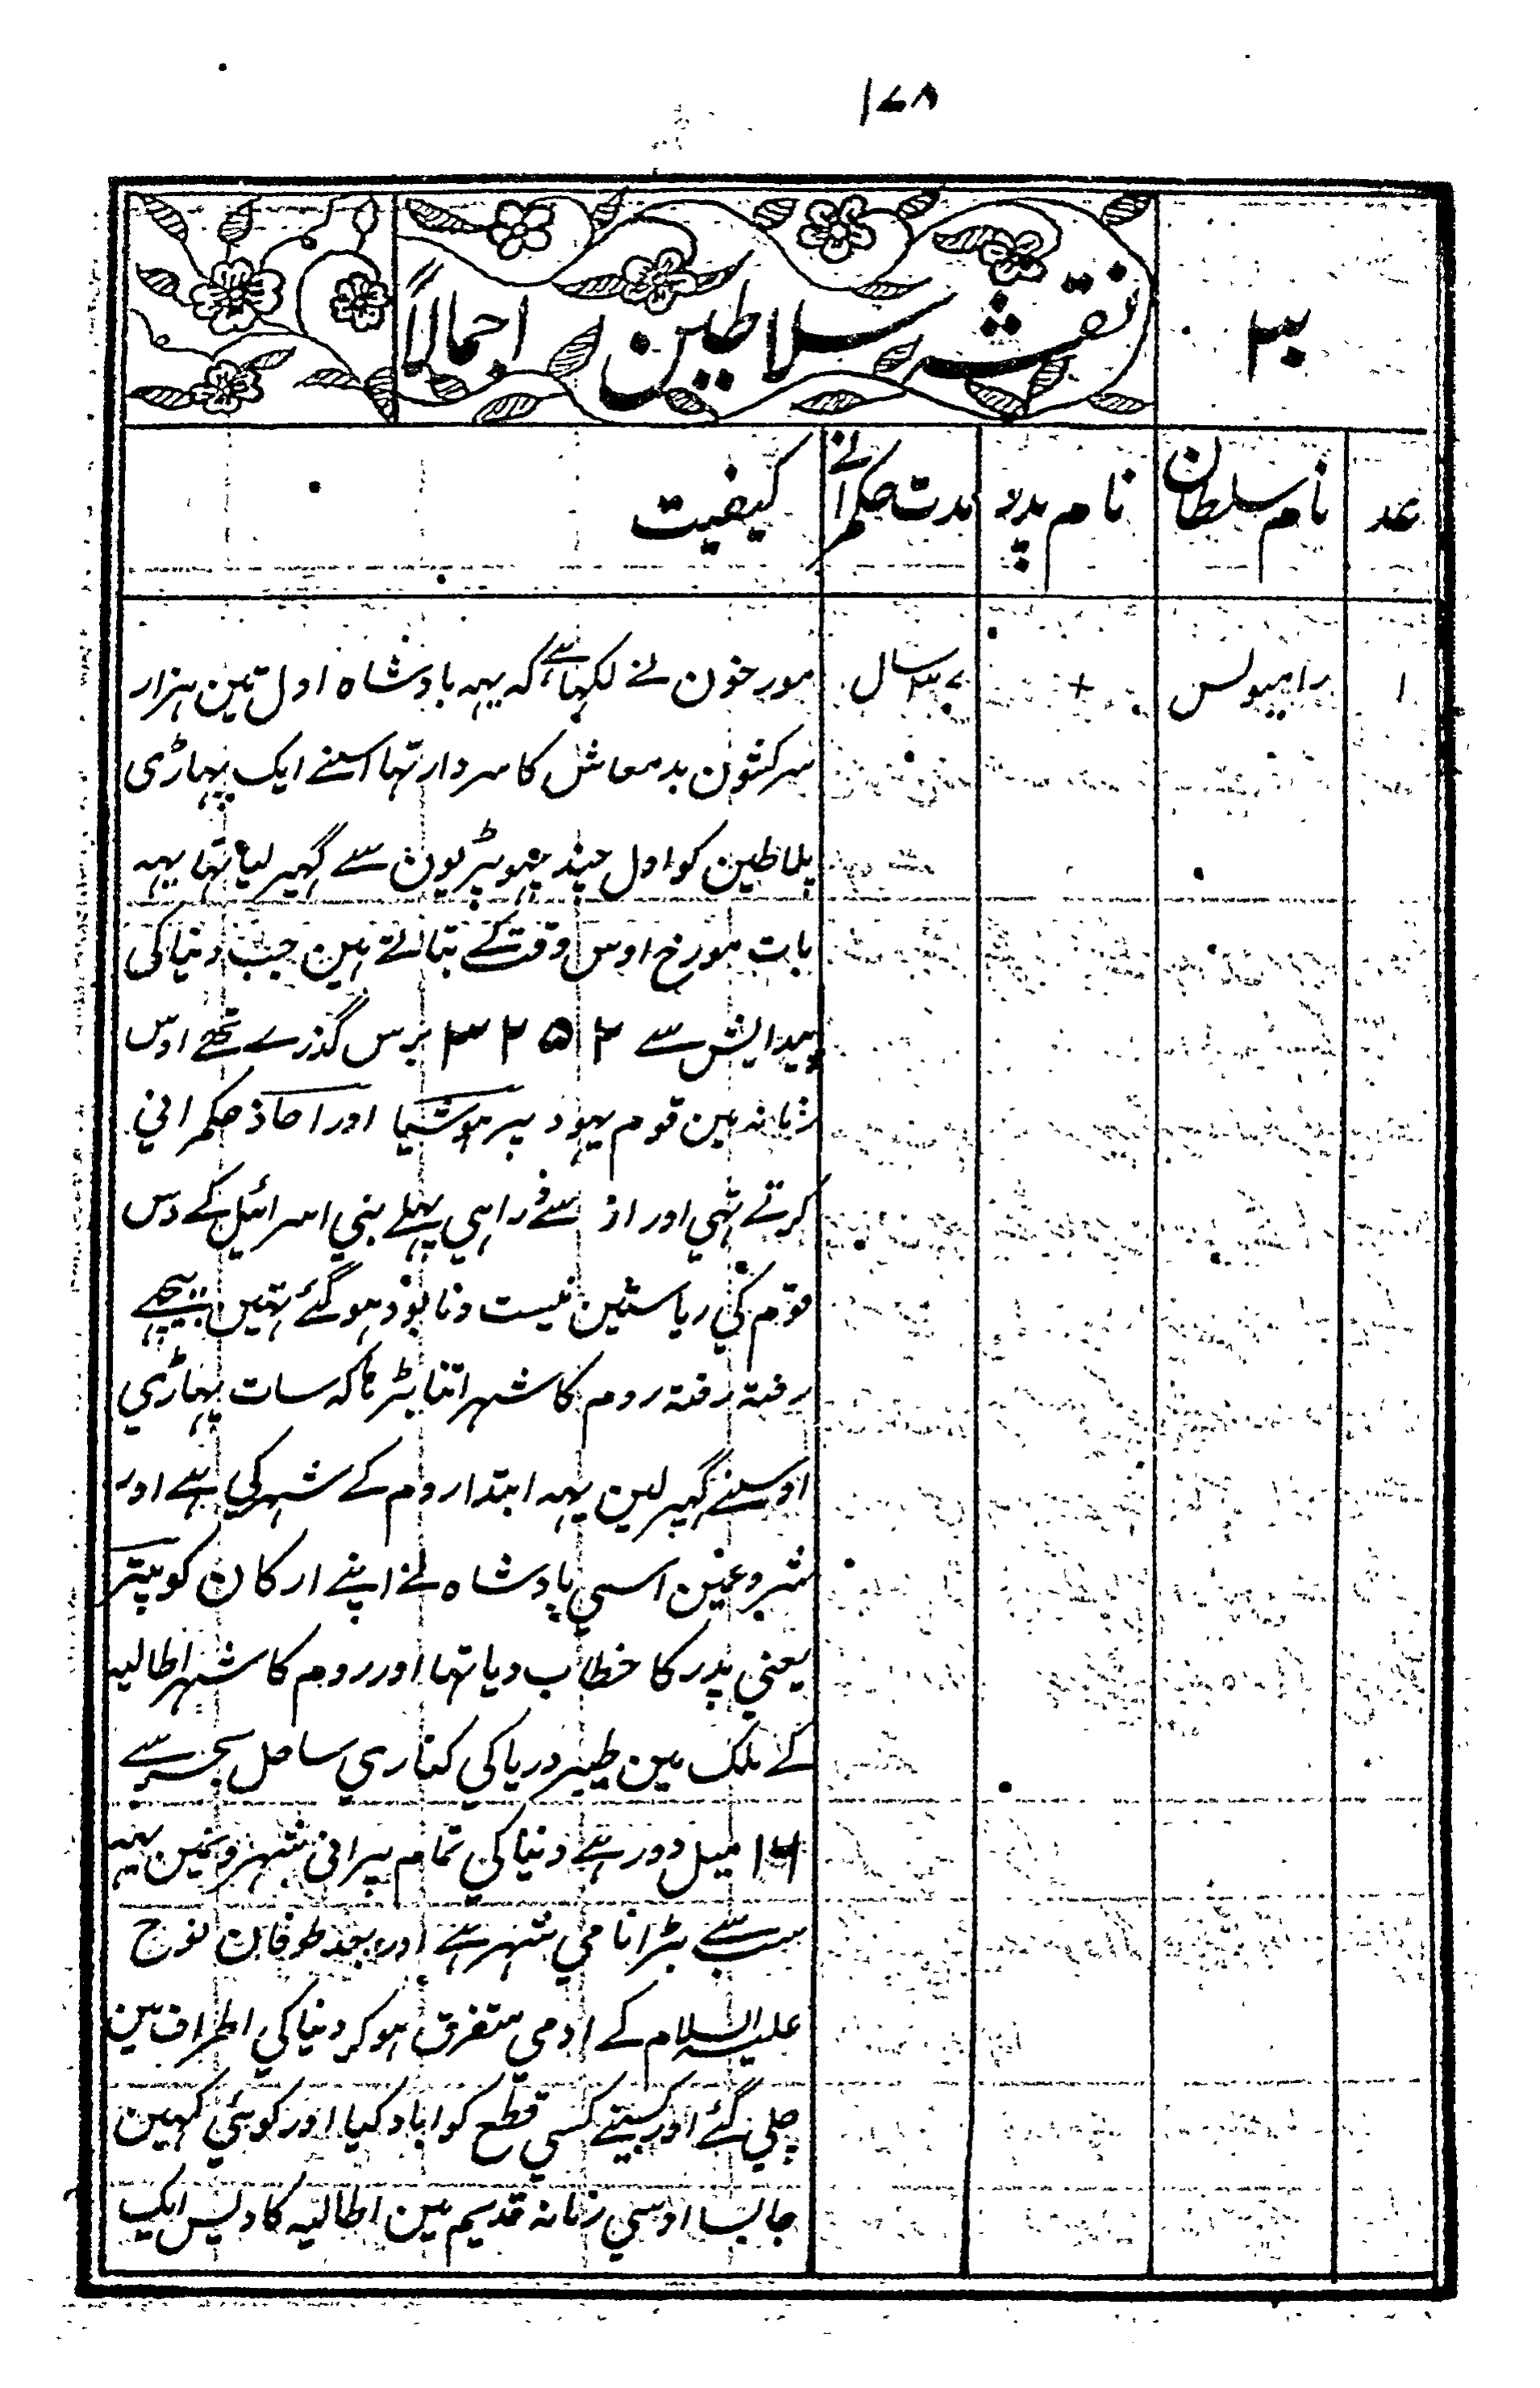 ۱۷۸
نقشہ سلاطین اجمالاً
عدد نام سلطان نام پدر مدت حکمرانے کیفیت
۱ رامیولس + ۳۷ سال مورخون نے لکہاہے کہ یہہ بادشاہ اول تین ہزار
سرکشون بدمعاش کا سردار تہا اسنے ایک پہاڑی
پلاطین کو اول چند جہوپڑیون سے گہیر لیا تہا یہہ
بات مورخ اوس وقت کے بتاتے ہین جب دنیا کی
پیدایش سے ۳۲۵۲ برس گذرے تھے اوس
زمانہ مین قوم یہود پر ہوشیا اور احاذ حکمرانی
کرتے تہی اور اوس سے ذراہی پہلے بنی اسرائیل کے دس
قوم کی ریاستین نیست و نابود ہوگئے تہین پیچھے
رفتہ رفتہ روم کا شہر اتنا بڑہا کہ سات پہاڑی
اوسنے گہیر لین یہہ ابتدا روم کے شہر کی ہے اور
شروعمین اسی پادشاہ نے اپنے ارکان کو پیتر
یعنی پدر کا خطاب دیا تہا اور روم کا شہر اطالیہ
کے ملک مین طیبر دریا کی کناری ساحل بحر سے
۱۶ میل دور ہے دنیا کی تمام پرانی شہرونمین یہہ
سب سے بڑا نامی شہر ہے اور بعد طوفان نوح
علیہ السلام کے ادمی متفرق ہوکر دنیا کی اطراف مین
چلی گئے اور کسینے کسی قطع کو اباد کیا اور کوئی کہین
جا بسا اوسی زمانہ قدیم مین اطالیہ کا دیس ایک